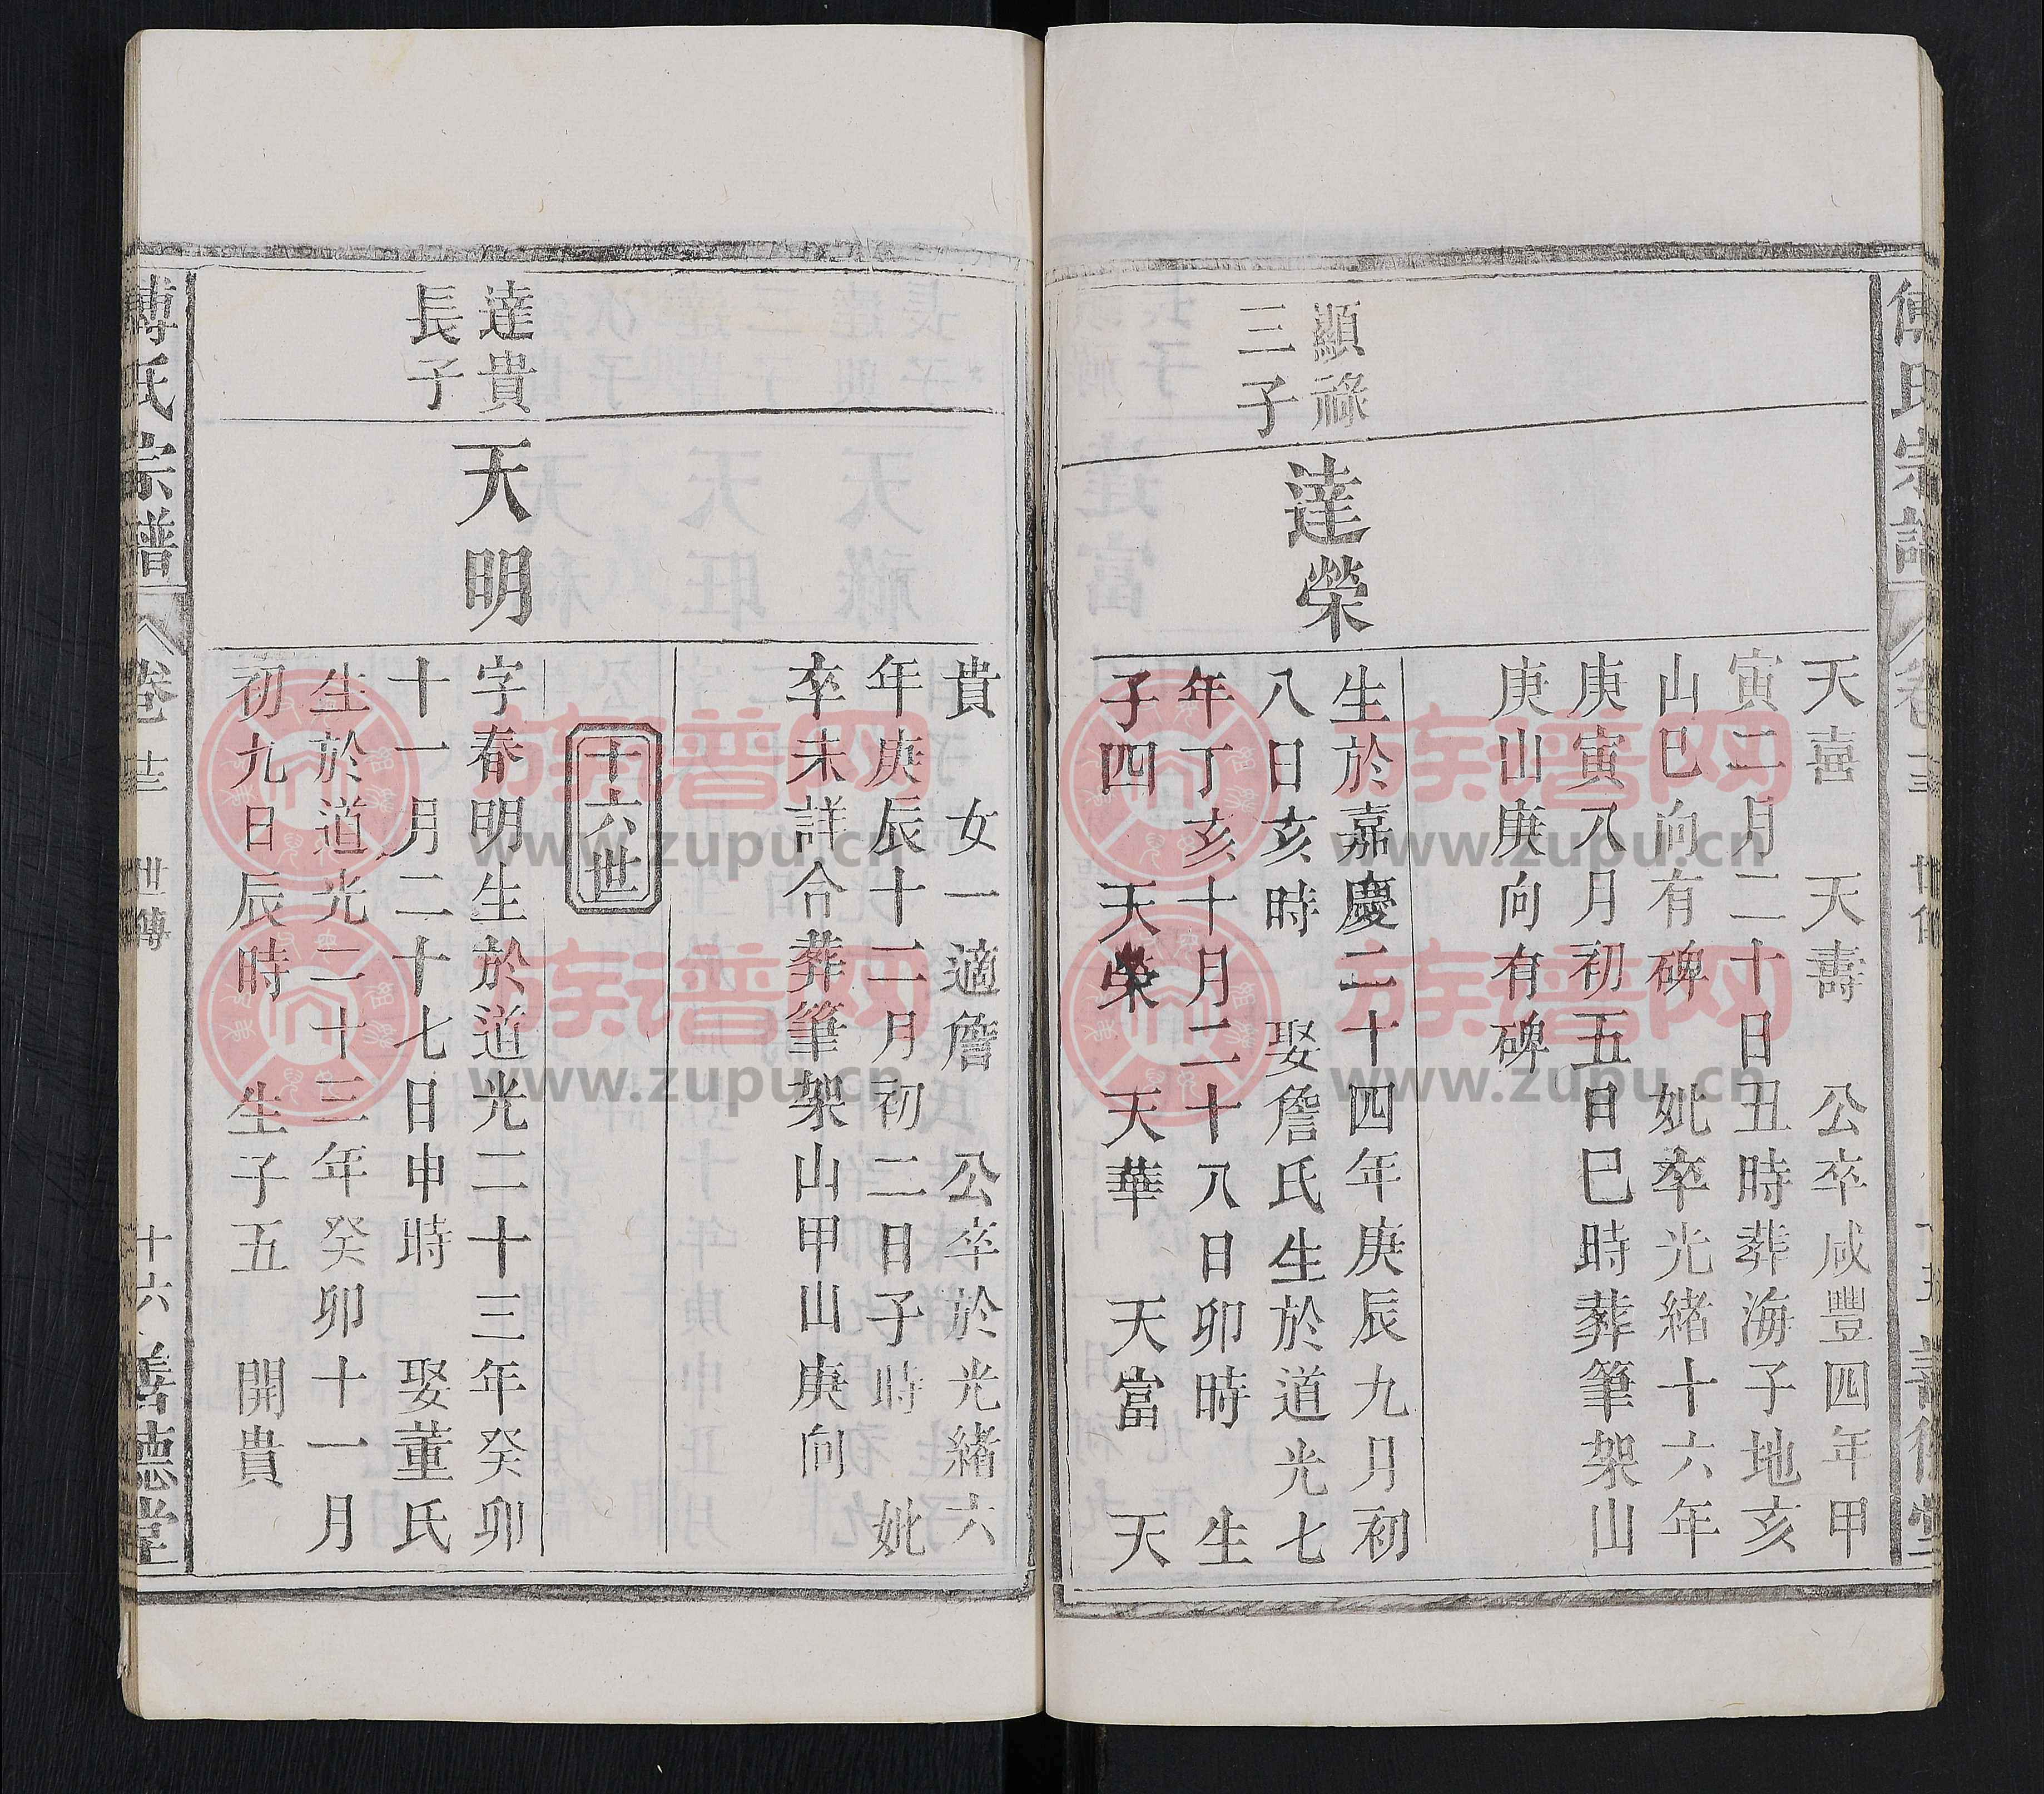 傅氏宗譜
卷十三
世傳
十五
善德堂
天喜 天壽 公卒咸豐四年甲
寅二月二十日丑時葬海子地亥
山巳向有碑 妣卒光緒十六年
庚寅八月初五日巳時葬筆架山
庚山庚向有碑
顯祿
三子
達榮
生於嘉慶二十四年庚辰九月初
八日亥時 娶詹氏生於道光七
年丁亥十月二十八日卯時 生
子四 天榮 天華 天富 天
貴 女一適詹 公卒於光緒六
年庚辰十二月初二日子時 妣
卒未詳合葬筆架山甲山庚向
十六世
達貴
長子
天明
字春明生於道光二十三年癸卯
十一月二十七日申時 娶董氏
生於道光二十三年癸卯十一月
初九日辰時 生子五 開貴
傅氏宗譜
卷十三
世傳
十六
善德堂
族譜网
www.zupu.cn
族譜网
www.zupu.cn
族譜网
www.zupu.cn
族譜网
www.zupu.cn